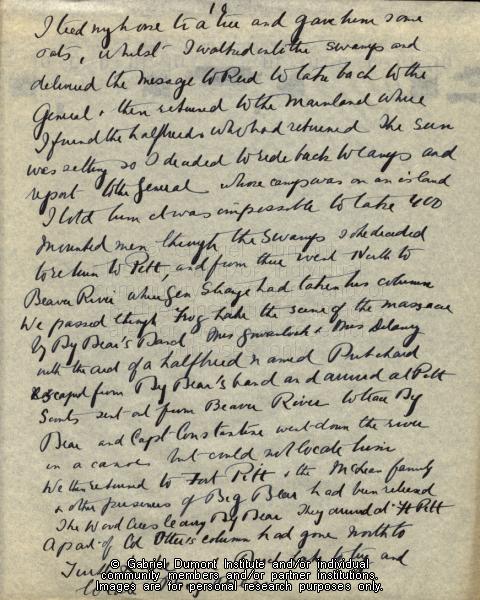 I tied my horse to a tree and gave him some
oats, whilst I walked into the swamps and
delivered the message to Reid to take back to the
General & then returned to the Mainland where
I found the halfbreeds who had returned The Sun
was setting so I decided to ride back to Camp and
report to the General whose camp was on an island
I told him it was impossible to take 400
mounted men through the Swamps & he decided
to return to Pitt, and from there went North to
Beaver River where Gen Strange had taken his column
We passed through Frog Lake the scene of the massacre
by Big Bear's Band Mrs Gowanlock & Mrs Delaney
with the aid of a halfbreed named Pritchard
escaped from Big Bear's band and arrived at Pitt
Scouts sent out from Beaver River to Big
Bear and Capt Constantine went down the river
in a canoe but could not locate him
We then returned to Fort Pitt & the McLean family
& other prisoners of Big Bear had been released
The Wood Crees leaving Big Bear They arrived at Ft Pitt
A part of Col Otter's column had gone north to
Turtle Lake and
© Gabriel Dumont Institute and/or individual
community members and/or partner institutions.
Images are for personal research purposes only.